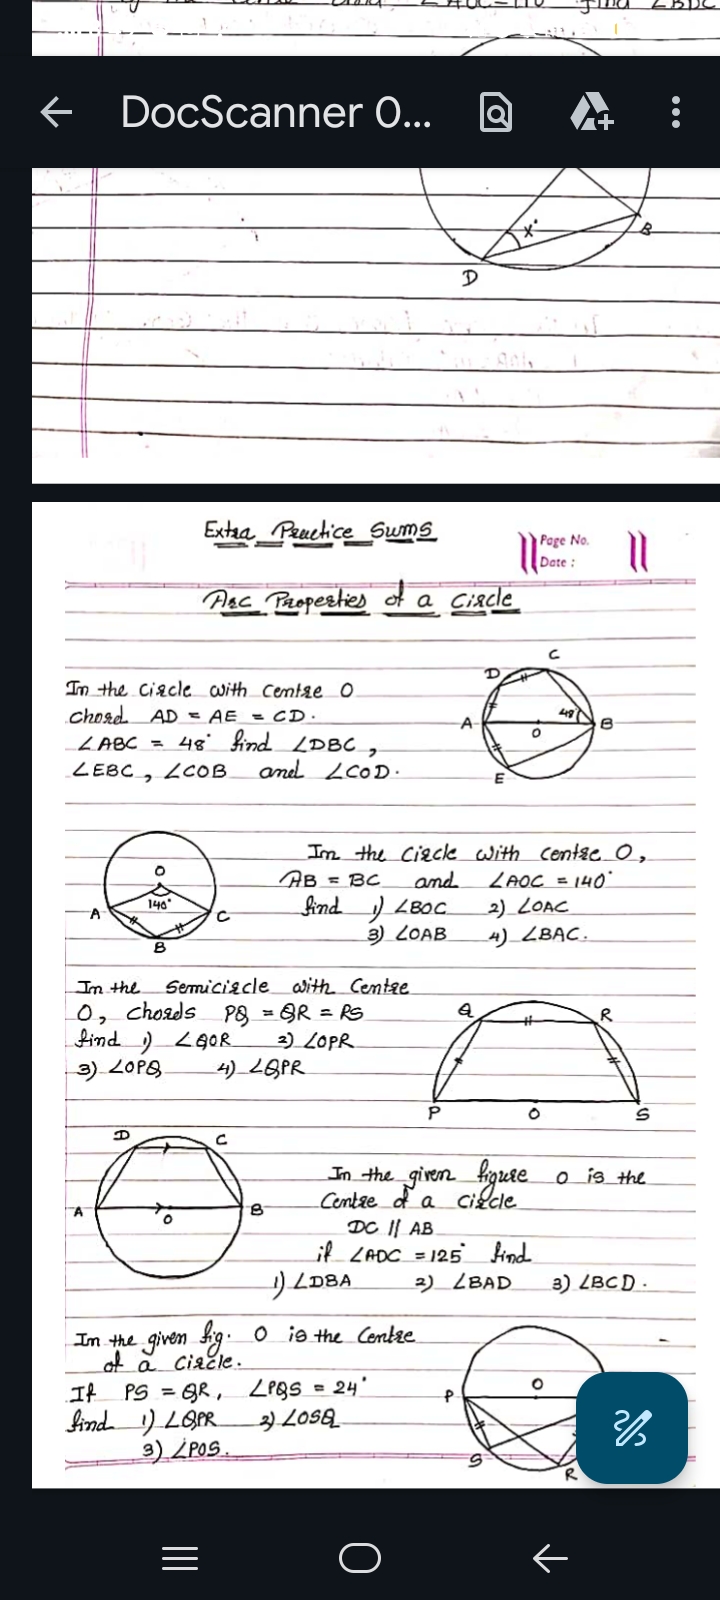 DocScanner 0...
x°
B
D
Extra Practice Sums
Page No.
Date :
Arc Properties of a Circle
C
D
In the Circle with Centre O
chord AD = AE = CD.
48°
A
O
B
∠ABC = 48° find ∠DBC,
∠EBC, ∠COB and ∠COD.
E
In the Circle with centre O,
AB = BC and ∠AOC = 140°
find 1) ∠BOC 2) ∠OAC
3) ∠OAB 4) ∠BAC.
O
140°
A
C
B
In the Semicircle with Centre
O, Chords PQ = QR = RS
find 1) ∠QOR 2) ∠OPR
3) ∠OPQ 4) ∠QPR
Q
R
P
O
S
D
C
A
O
B
In the given figure O is the
Centre of a circle
DC // AB
if ∠ADC = 125° find
1) ∠DBA 2) ∠BAD 3) ∠BCD.
In the given fig. O is the Centre
of a Circle.
If PS = QR, ∠PQS = 24°
find 1) ∠QPR 2) ∠OSQ
3) ∠POS.
O
P
S
R